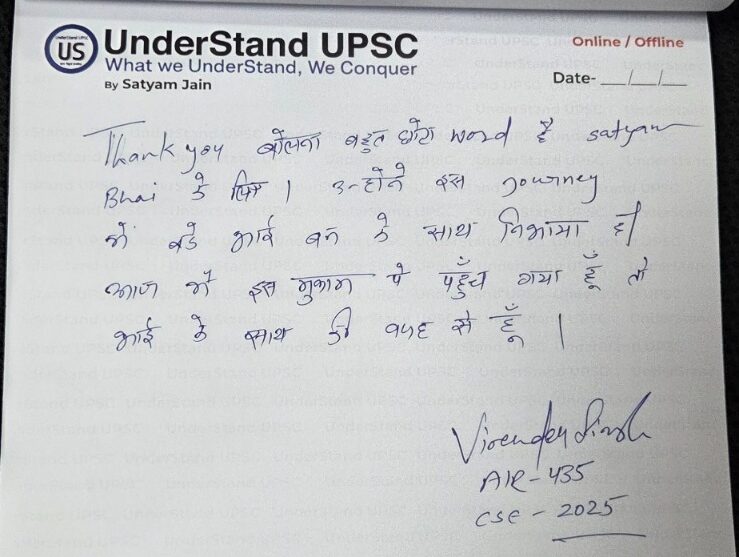 US
UnderStand UPSC
What we UnderStand, We Conquer
By Satyam Jain
Online / Offline
Date- __/__/__
Thank you बोलना बहुत छोटा word है satyam
Bhai के लिए । उन्होंने इस journey
में बड़े भाई बन के साथ निभाया है।
आज मैं इस मुकाम पे पहुँच गया हूँ तो
भाई के साथ की वजह से हूँ ।
Virender Singh
AIR - 435
CSE - 2025